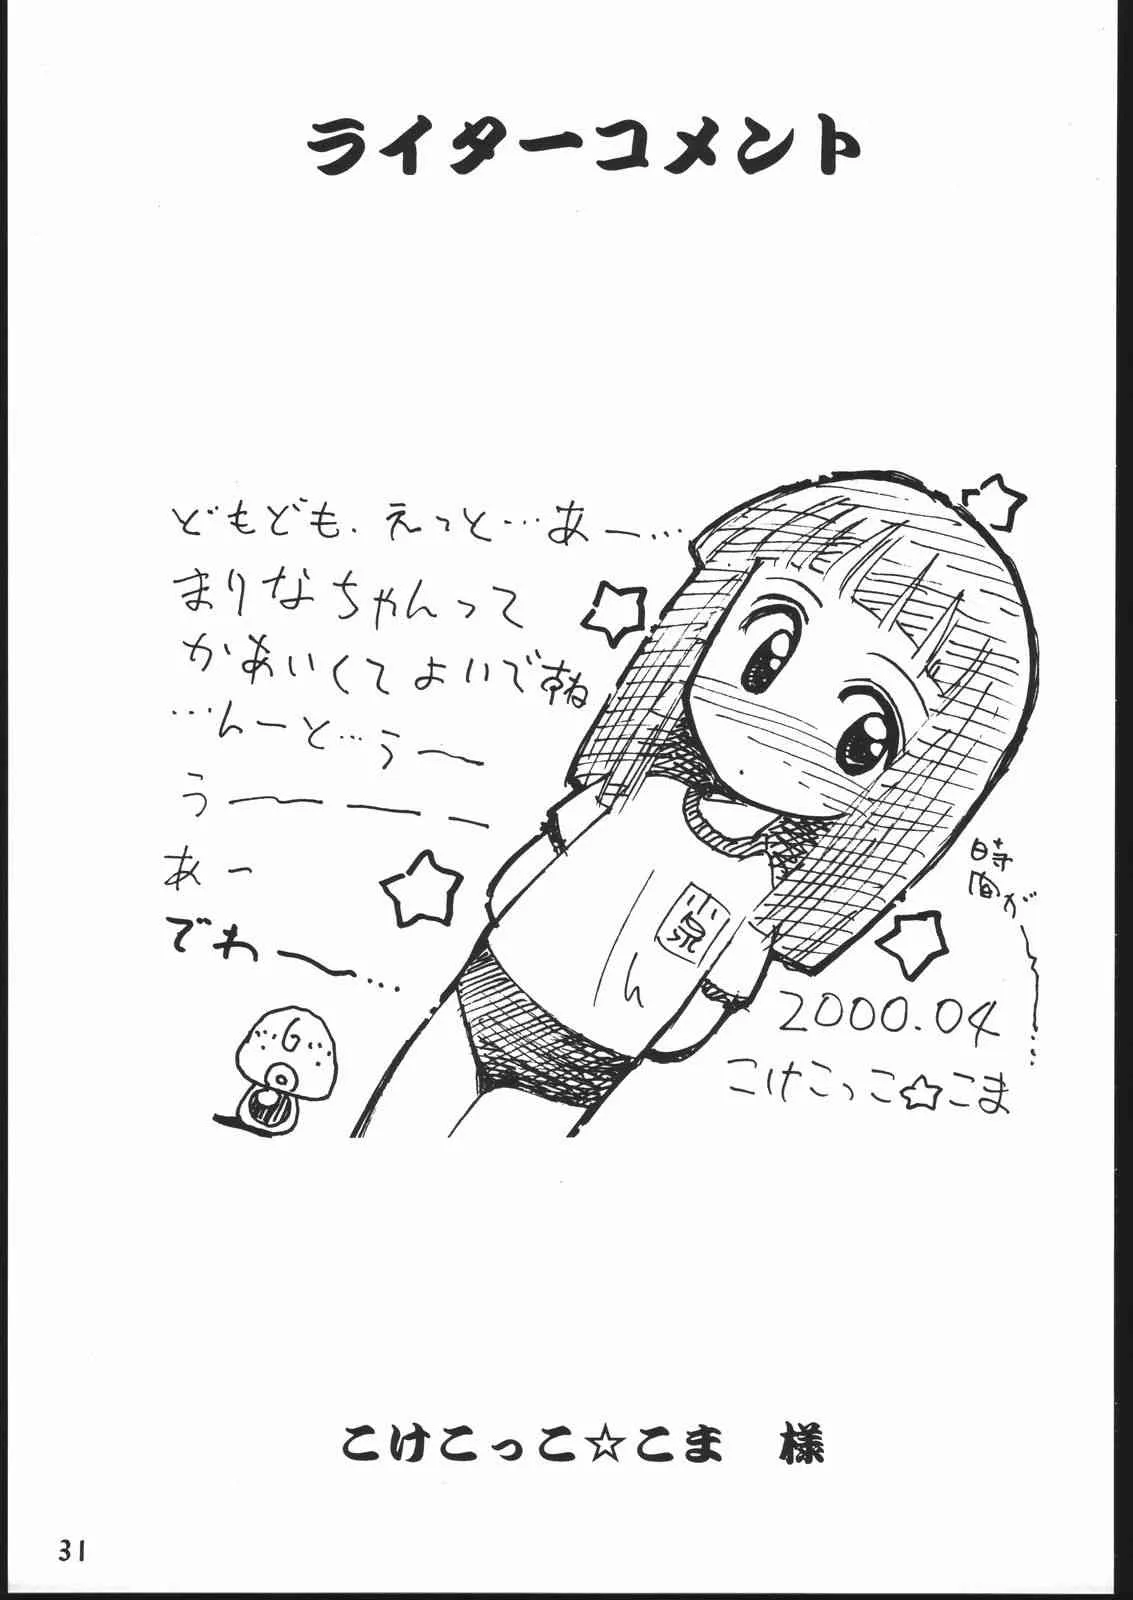 ライターコメント
どもども、えっと…あー…
まりなちゃんって
かあいくてよいですね
…んーと…うー
うーーー
あー
でわー…
小泉
時間がー…
2000.04
こけこっこ☆こま
G
こけこっこ☆こま 様
31